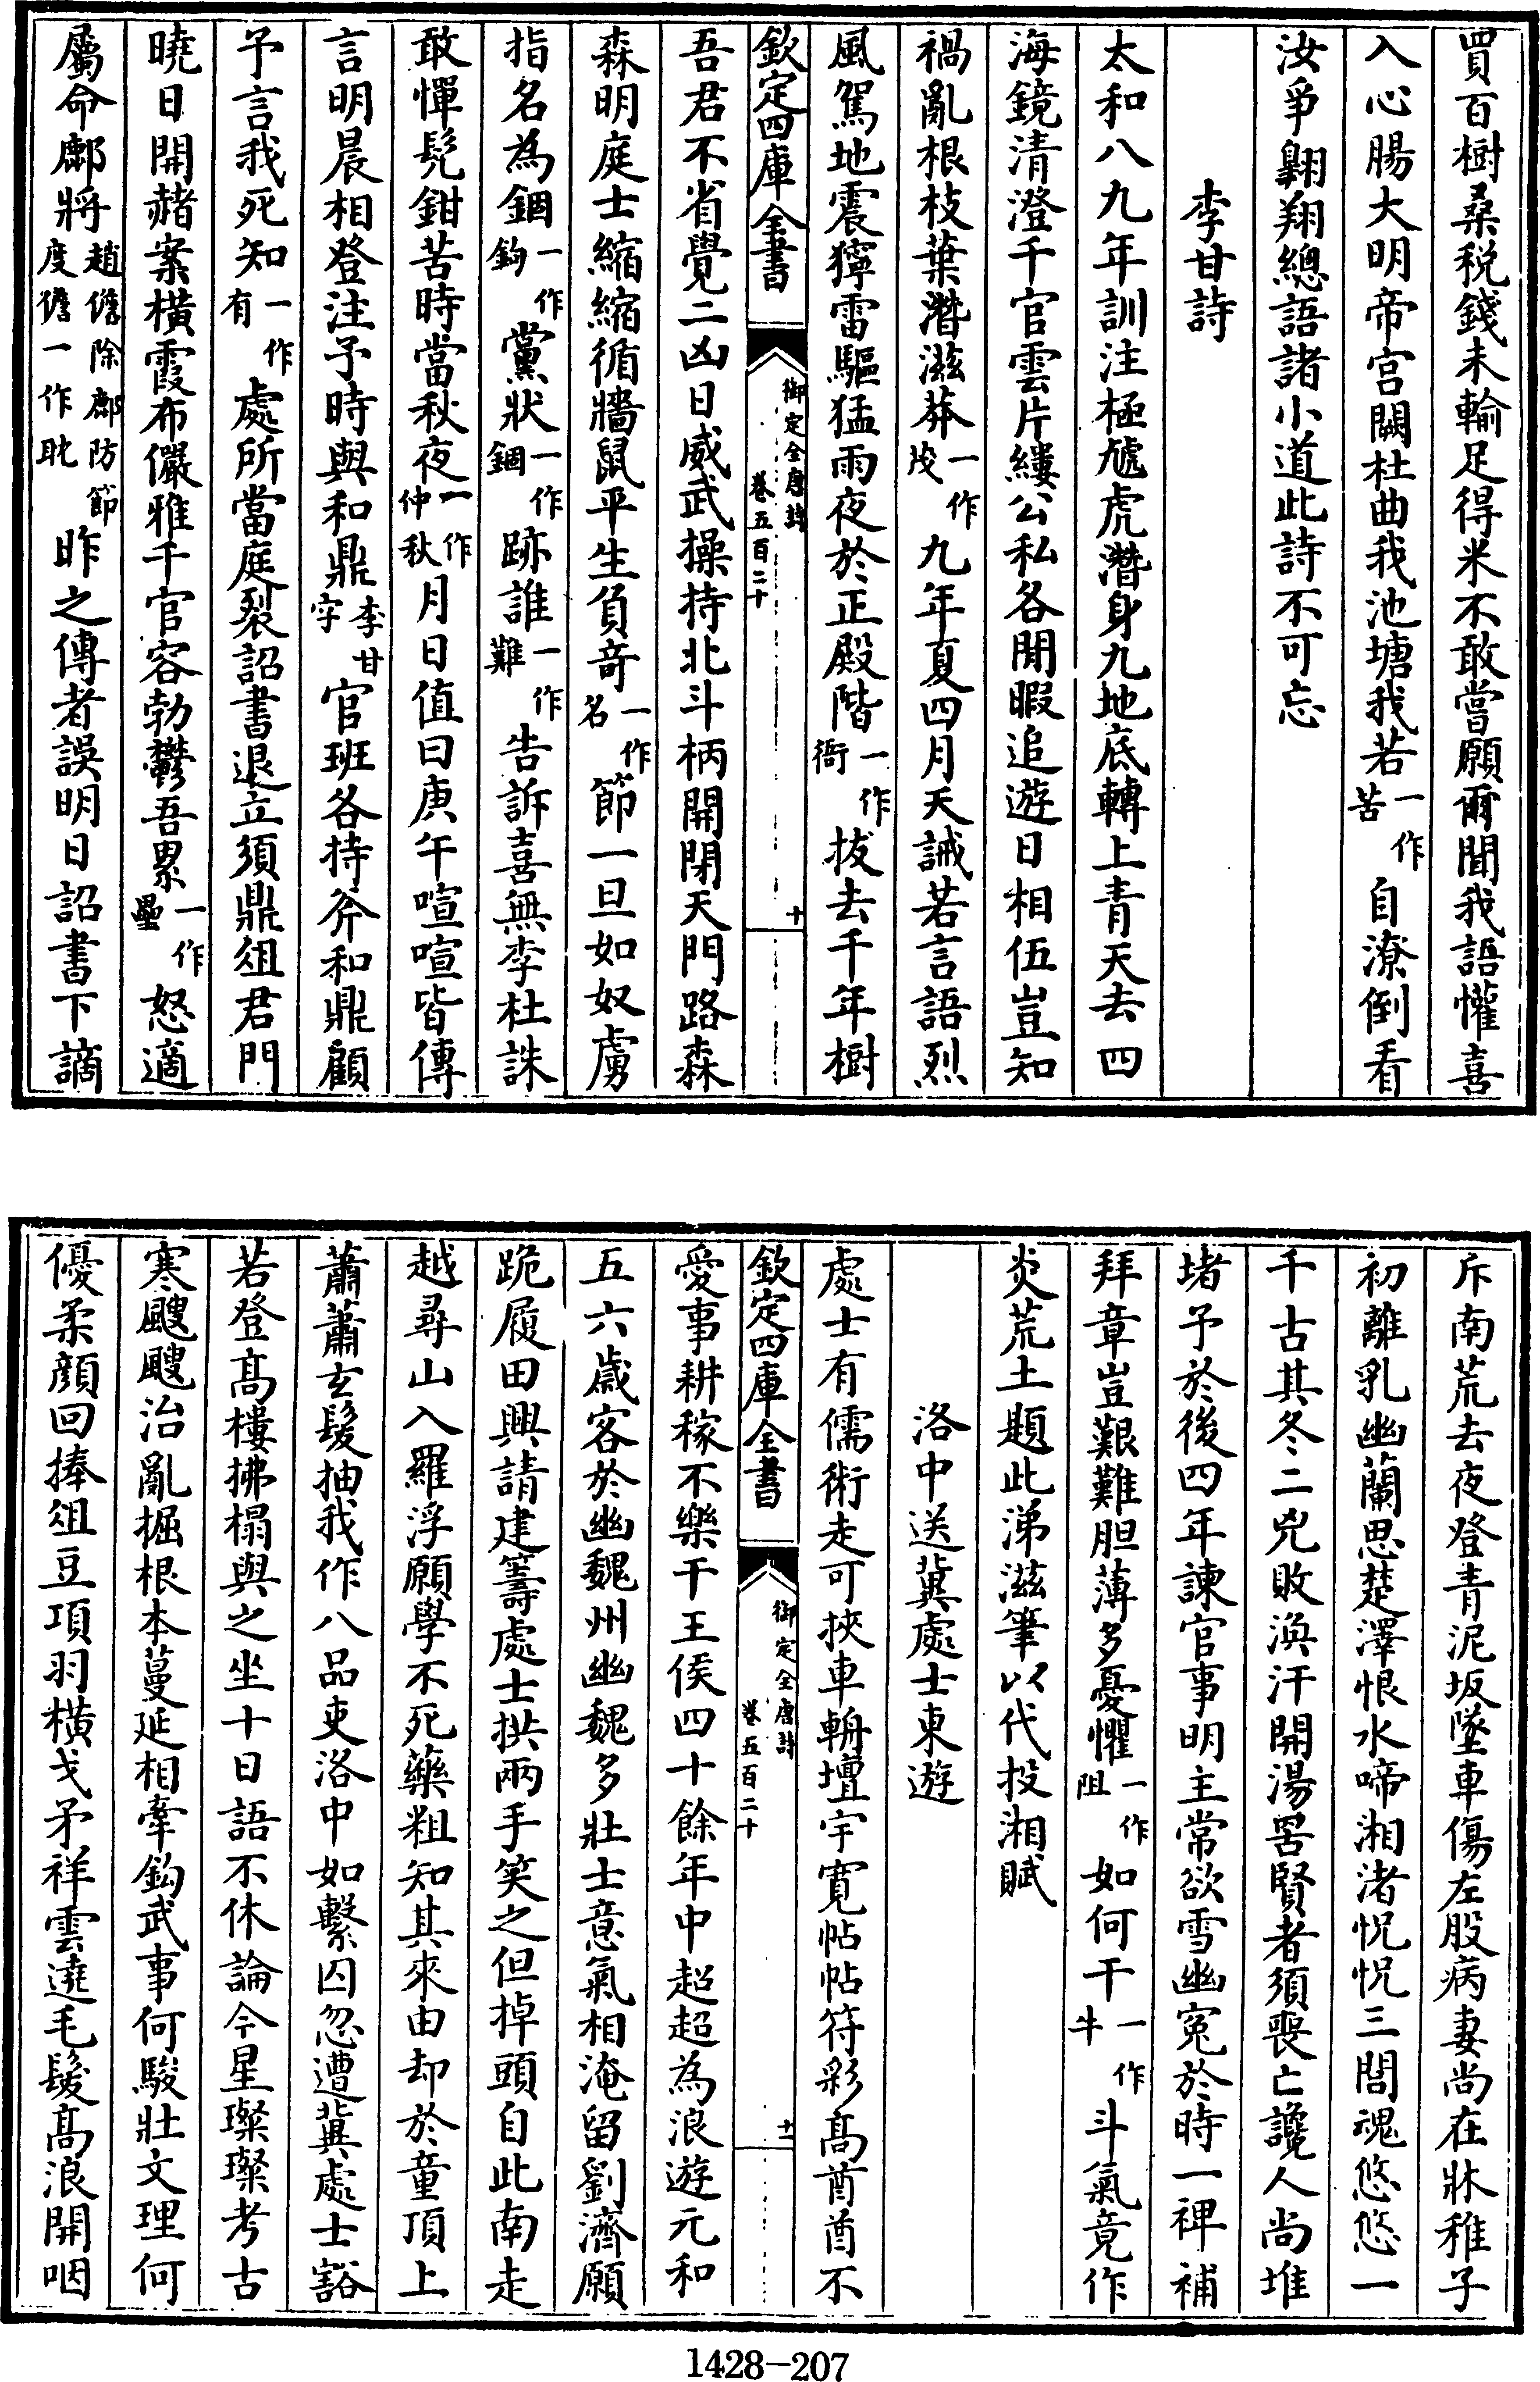 買百樹桑稅錢未輸足得米不敢嘗願爾聞我語懽喜
入心腸大明帝宮闕杜曲我池塘我若一作苦自潦倒看
汝爭翺翔總語諸小道此詩不可忘
李甘詩
太和八九年訓注極虓虎潛身九地底轉上青天去四
海鏡清澄千官雲片縷公私各閒暇追遊日相伍豈知
禍亂根枝葉潛滋莽一作茂九年夏四月天誡若言語烈
風駕地震獰雷驅猛雨夜於正殿階一作衙拔去千年樹
欽定四庫全書 御定全唐詩 卷五百二十 十
吾君不省覺二凶日威武操持北斗柄開閉天門路森
森明庭士縮縮循牆鼠平生負奇一作名節一旦如奴虜
指名為錮一作鉤黨狀一作錮跡誰一作難告訴喜無李杜誅
敢憚髡鉗苦時當秋夜一作仲秋月日值曰庚午喧喧皆傳
言明晨相登注予時與和鼎李甘字官班各持斧和鼎顧
予言我死知一作有處所當庭裂詔書退立須鼎俎君門
曉日開赭案橫霞布儼雅千官容勃鬱吾累一作壘怒適
屬命鄜將趙儋除鄜防節度儋一作耽昨之傳者誤明日詔書下謫
斥南荒去夜登青泥坂墜車傷左股病妻尚在牀稚子
初離乳幽蘭思楚澤恨水啼湘渚怳怳三閭魂悠悠一
千古其冬二兇敗渙汗開湯罟賢者須喪亡讒人尚堆
堵予於後四年諫官事明主常欲雪幽冤於時一裨補
拜章豈艱難胆薄多憂懼一作阻如何干一作牛斗氣竟作
炎荒土題此涕滋筆以代投湘賦
洛中送冀處士東遊
處士有儒術走可挾車輈壇宇寬帖帖符彩高酋酋不
欽定四庫全書 御定全唐詩 卷五百二十 十一
愛事耕稼不樂干王侯四十餘年中超超為浪遊元和
五六歲客於幽魏州幽魏多壯士意氣相淹留劉濟願
跪履田興請建籌處士拱兩手笑之但掉頭自此南走
越尋山入羅浮願學不死藥粗知其來由却於童頂上
蕭蕭玄髮抽我作八品吏洛中如繫囚忽遭冀處士豁
若登高樓拂榻與之坐十日語不休論今星璨璨考古
寒颼颼治亂掘根本蔓延相牽鈎武事何駿壯文理何
優柔顔回捧俎豆項羽橫戈矛祥雲遶毛髮高浪開咽
1428-207